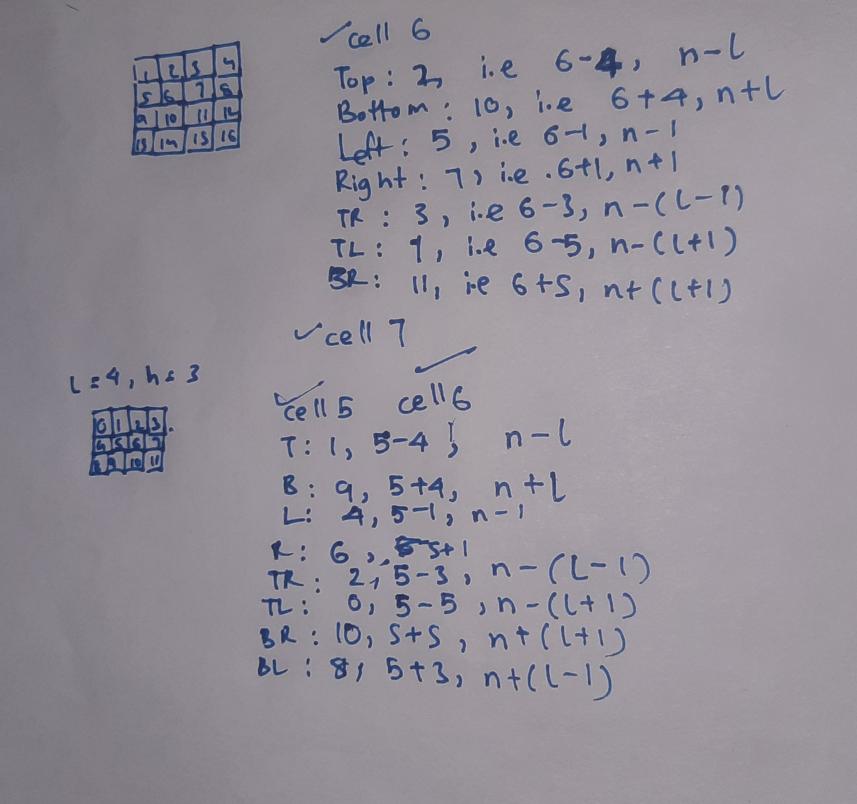 ✓cell 6
1 2 3 4
5 6 7 8
9 10 11 12
13 14 15 16
Top : 2, i.e 6-4, n-l
Bottom : 10, i.e 6+4, n+l
Left : 5, i.e 6-1, n-1
Right : 7, i.e. 6+1, n+1
TR : 3, i.e 6-3, n-(l-1)
TL : 1, i.e 6-5, n-(l+1)
BR : 11, ie 6+5, n+(l+1)
✓cell 7
l=4, h=3
0 1 2 3
4 5 6 7
8 9 10 11
✓cell 5 ✓cell 6
T : 1, 5-4, n-l
B : 9, 5+4, n+l
L : 4, 5-1, n-1
R : 6, 5+1
TR : 2, 5-3, n-(l-1)
TL : 0, 5-5, n-(l+1)
BR : 10, 5+5, n+(l+1)
BL : 8, 5+3, n+(l-1)